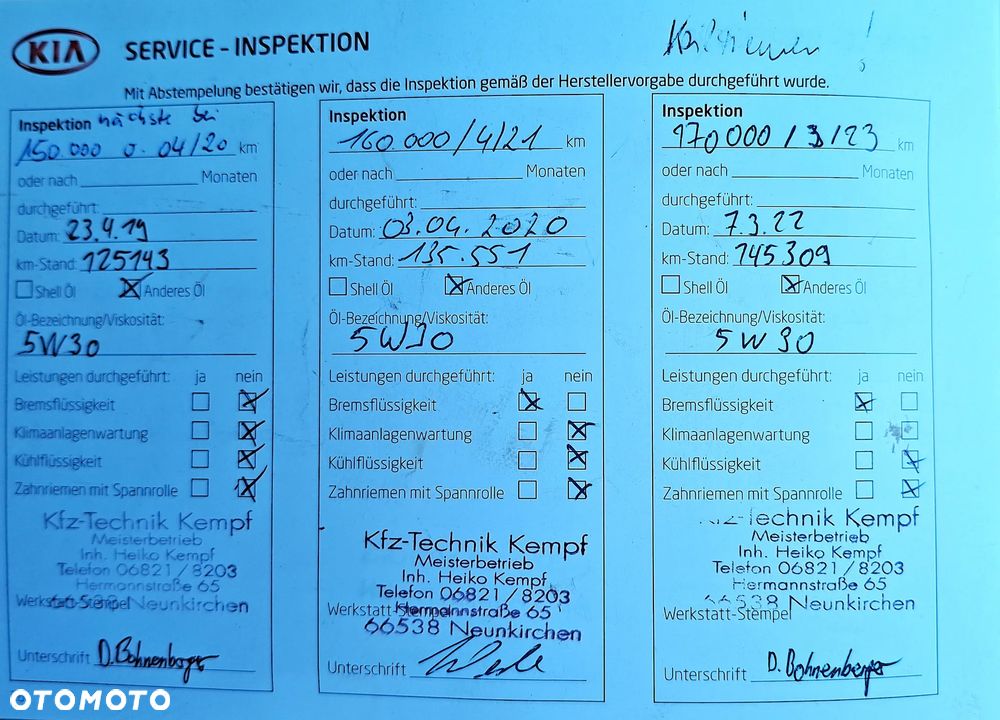 KIA SERVICE - INSPEKTION
Mit Abstempelung bestätigen wir, dass die Inspektion gemäß der Herstellervorgabe durchgeführt wurde.
Inspektion nächste bei
150.000 o. 04/20 km
oder nach Monaten
durchgeführt:
Datum: 23.4.19
km-Stand: 125143
Shell Öl Anderes Öl
Öl-Bezeichnung/Viskosität:
5W30
Leistungen durchgeführt: ja nein
Bremsflüssigkeit
Klimaanlagenwartung
Kühlflüssigkeit
Zahnriemen mit Spannrolle
Kfz-Technik Kempf
Meisterbetrieb
Inh. Heiko Kempf
Telefon 06821 / 8203
Hermannstraße 65
Werkstatt-Stempel Neunkirchen
Unterschrift D. Bohnenberger
Inspektion
160.000/4/21 km
oder nach Monaten
durchgeführt:
Datum: 03.04.2020
km-Stand: 135.551
Shell Öl Anderes Öl
Öl-Bezeichnung/Viskosität:
5W30
Leistungen durchgeführt: ja nein
Bremsflüssigkeit
Klimaanlagenwartung
Kühlflüssigkeit
Zahnriemen mit Spannrolle
Kfz-Technik Kempf
Meisterbetrieb
Inh. Heiko Kempf
Telefon 06821 / 8203
Werkstatt-Stempel Hermannstraße 65
66538 Neunkirchen
Unterschrift
Inspektion
170000/3/23 km
oder nach Monaten
durchgeführt:
Datum: 7.3.22
km-Stand: 145309
Shell Öl Anderes Öl
Öl-Bezeichnung/Viskosität:
5W30
Leistungen durchgeführt: ja nein
Bremsflüssigkeit
Klimaanlagenwartung
Kühlflüssigkeit
Zahnriemen mit Spannrolle
Technik Kempf
Meisterbetrieb
Inh. Heiko Kempf
Telefon 06821 / 8203
Hermannstraße 65
66538 Neunkirchen
Werkstatt-Stempel
Unterschrift D. Bohnenberger
OTOMOTO